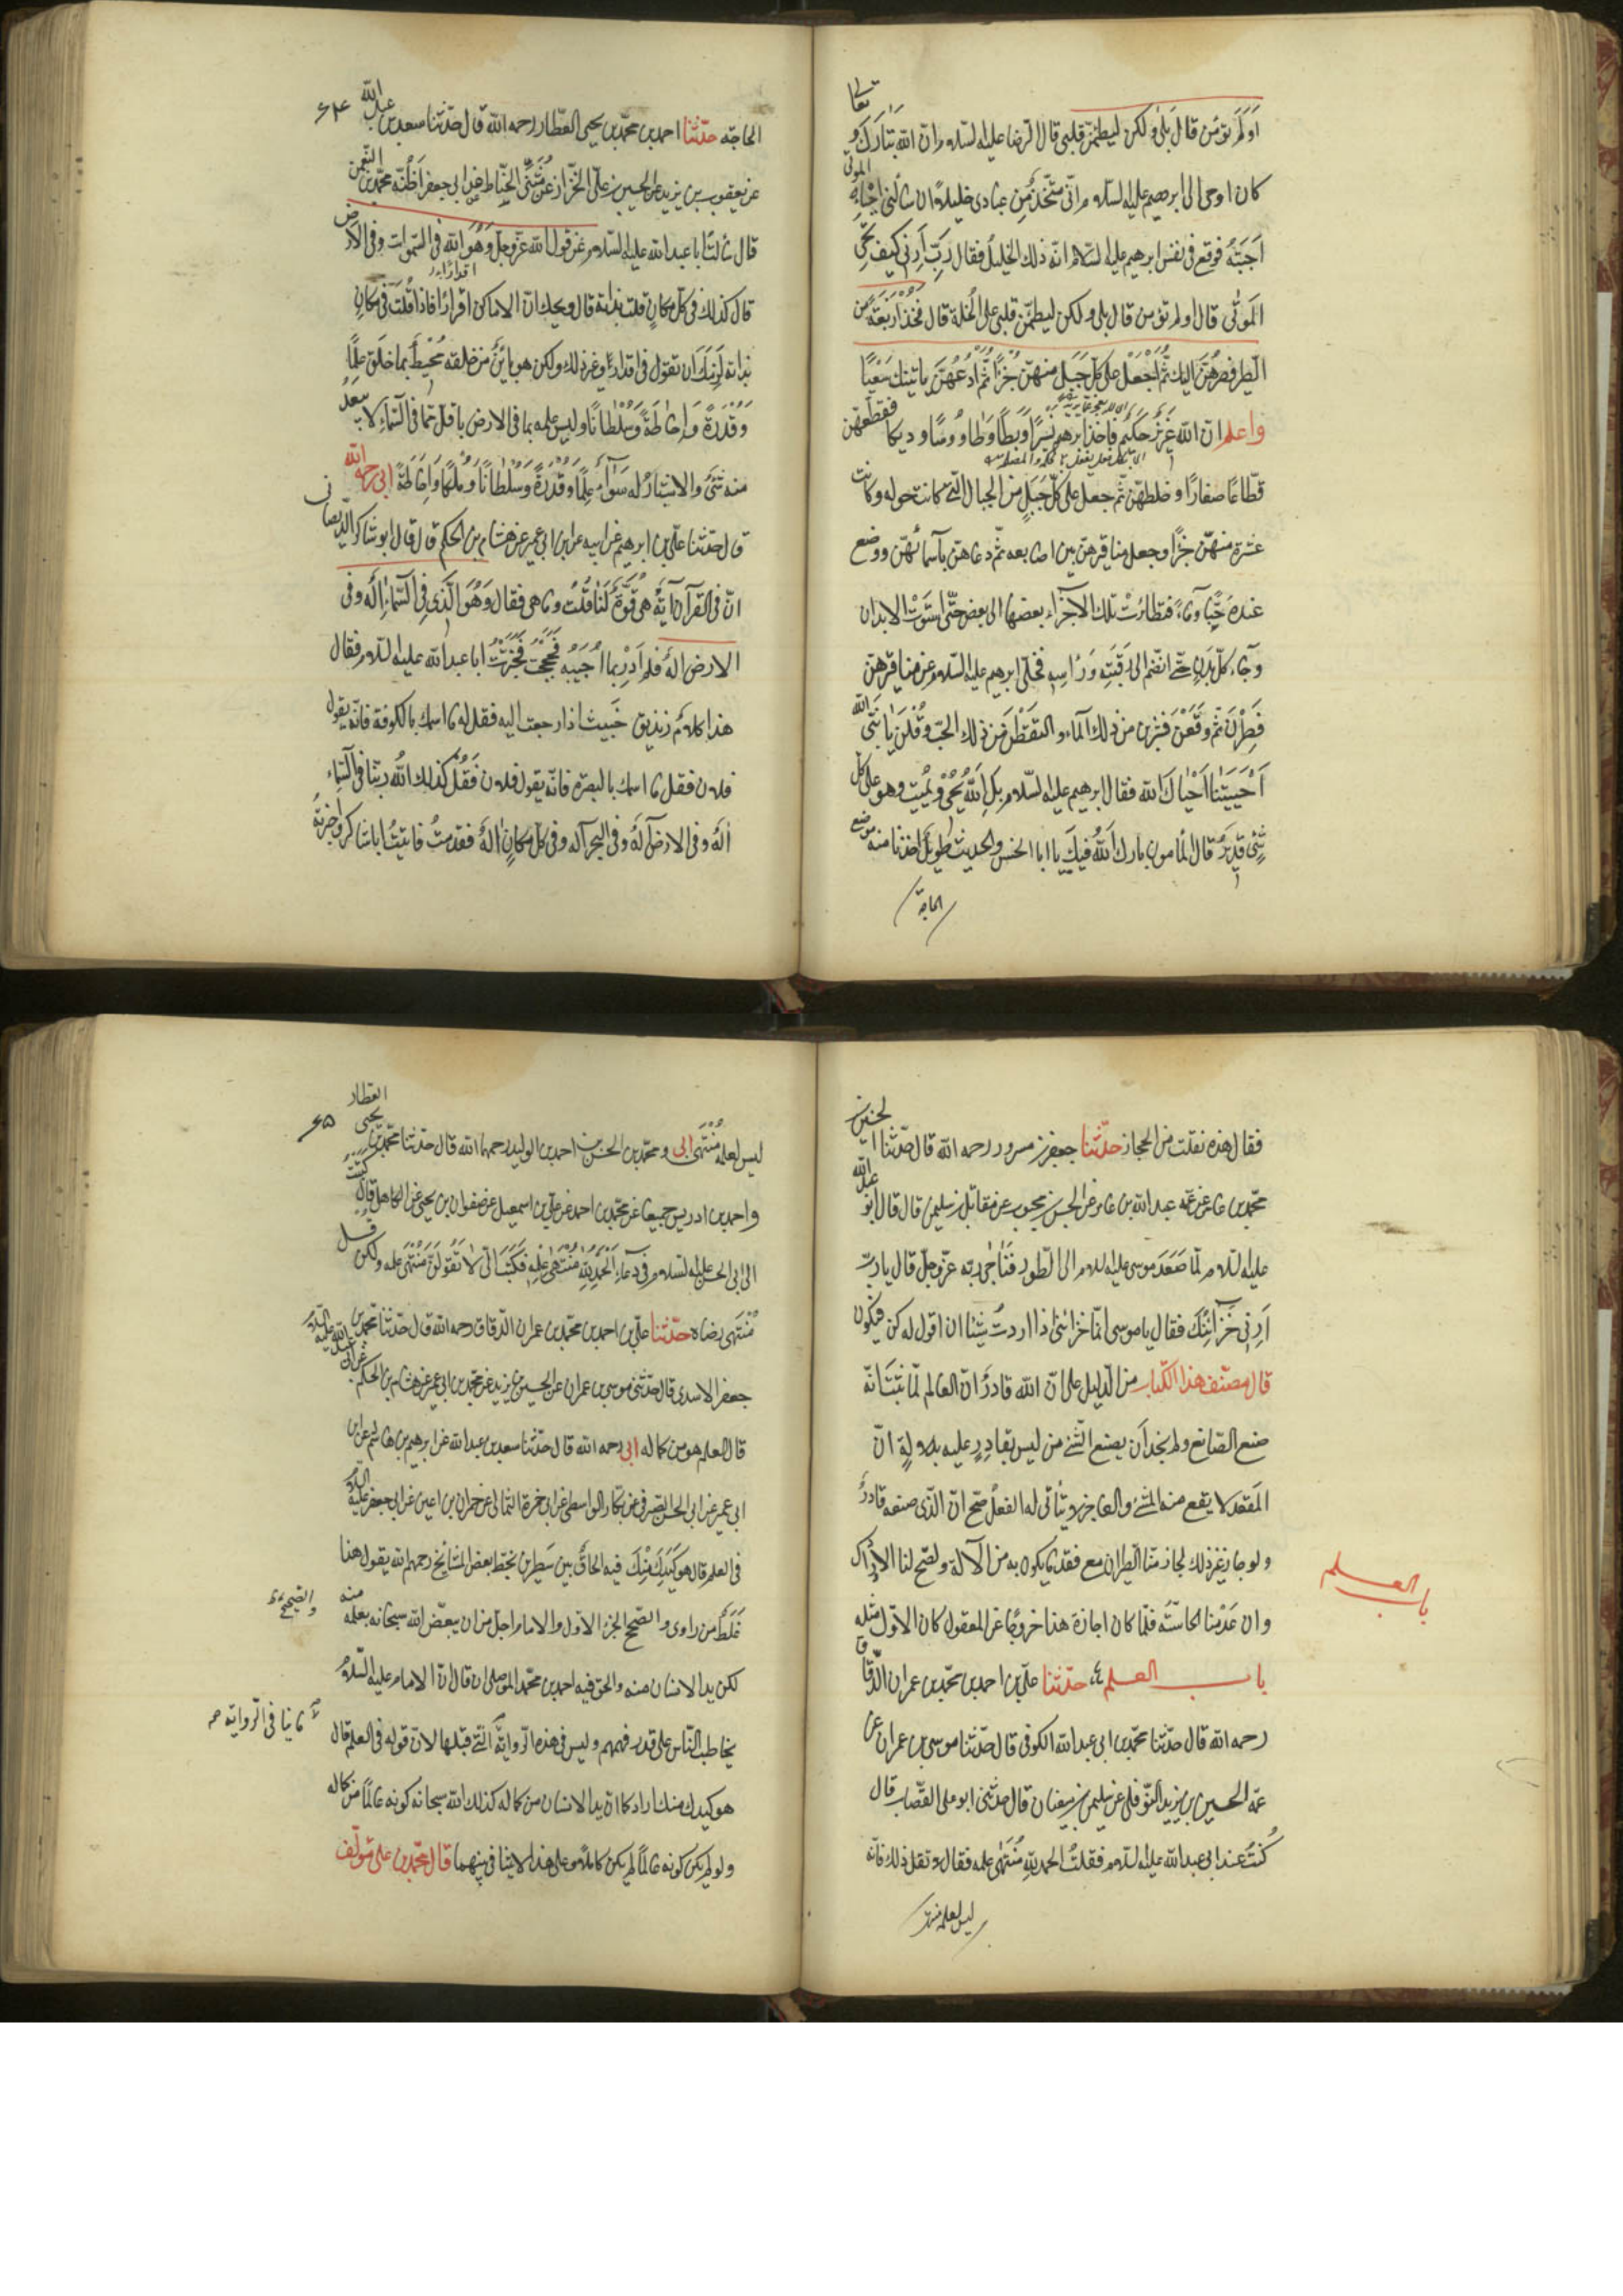 اَوَلَمْ تؤمن قال بَلٰى ولكن ليطمئنّ قلبى قال الرضا عليه السلام انّ الله تبارك و
تعا
كان اوحى الى ابرهيم عليه السلام انّى متّخذ مِن عبادى خليلا ان سألنى احياء
الموتى
اَجَبْتُه فوقع فى نفس ابرهيم عليه السّلام انّه ذلك الخليل فقال رَبِّ اَرِنى كيف تحيى
الموتٰى قال اولم تؤمن قال بلى ولكن ليطمئنّ قلبى على الخلة قال فَخُذْ اَرْبَعَةً من
الطير فصرهنّ اليك ثُمَّ اجْعَلْ على كلّ جَبَلٍ منهنّ جُزْءًا ثُمَّ ادْعُهُنَّ ياتينك سَعْيًا
واعلم انّ الله عَزِيزٌ حَكيم فاخذ ابرهيم نَسْرًا وَبَطًّا وَطاوُوسًا وديكا فقطّعهن
قطاعًا صغارًا وخلطهنّ ثم جعل على كلّ جَبَلٍ من الجبال الّتى كانت حوله وكانت
عشرة منهنّ جُزْءًا وجعل مناقيرهنّ بين اصابعه ثم دعاهنّ بأسمائهنّ ووضع
عنده حَبًّا وماءً فتطايَرَتْ تلك الاجزاء بعضها الى بعض حتّى استَوَتْ الابدان
وجاء كلّ بدن حتى انضم الى رَقَبَتِهِ وَرَاسِهِ فخلّى ابرهيم عليه السلام عن مناقيرهن
فَطِرْنَ ثم وَقَعْنَ فشربن من ذلك الماء والتقَطْنَ من ذلك الحبّ وقُلْنَ يا نبىّ
الله
اَحْيَيْتَنا اَحْياكَ الله فقال ابرهيم عليه السّلام بل الله يُحْيى ويُميت وهو على كل
شئ قدير قال المأمون بارك اللّه فيك يا ابا الحسن والحديث طويل اخذنا منه موضع
الحاجة
۶۴
الحاجة حدّثنا احمد بن محمّد بن يحيى العطّار رحمه الله قال حدّثنا سعد بن عبد الله
عن يعقوب بن يزيد عن الحسين بن علىّ الخزّاز عن مُثَنّى الحنّاط عن ابى جعفر اَظُنّه محمّد بن النعمن
قال سألت ابا عبد الله عليه السّلام عن قول الله عزّ وجلّ وَهُوَ الله فى السّموات وفى الارض
قال كذلك فى كلّ مكانٍ قلت بذاته قال ويحك انّ الاماكن اقرارًا فاذا قُلْتَ فى مكان
اقدارا
بذاته لَزِمَكَ ان تقول فى اقدارٍ وغير ذلك ولكن هو باينٌ من خلقه مُحْيطٌ بما خلق علمًا
وَقُدْرَةً وَاِحٰاطَةً وَسُلْطانًا وليس علمه بما فى الارض باقلّ ممّا فى السّماء لا يبعد
منه شئٌ والاشياء له سَوٰاءٌ عِلمًا وَقُدْرَةً وَسُلْطانًا وَمُلْكًا وَاِحٰاطَةً ابى رحمه الله
قال حدّثنا علىّ بن ابرهيم عن ابيه عن ابن ابى عمير عن هشام بن الحكم قال قال ابو شاكر الديصانى
انّ فى القرآن آيةً هى قُوّةٌ لنا قُلْتُ وما هى فقال وَهُوَ الَّذى فى السّماءِ اِلٰهٌ وفى
الارض اِلهٌ فلم اَدْرِ بما اُجيبُه فَحَجَجْتُ فَخَبَّرْتُ ابا عبد اللّه عليه السلام فقال
هذا كلامُ زنديق خَبيث اذا رجعت اليه فقل له ما اسمك بالكوفة فانّه يقول
فلان فقل ما اسمك بالبصرة فانّه يقول فلان فَقُلْ كذلك اللّه ربّنا فى السّماء
اِلٰهٌ وفى الارض آلهٌ وفى البحر آله وفى كلّ مكانٍ الهٌ فقدمتُ فاتيتُ ابا شاكر فاخبرتهُ
فقال هذه نقلت من الحجاز حدّثنا جعفر بن مسرور رحمه الله قال حدّثنا الحسين بن
محمّد بن عامر عن عمّه عبد الله بن عامر عن الحسن بن محبوب عن مقاتل بن سليمن قال قال ابو عبد الله
عليه السلام لمّا صَعَدَ موسى عليه السلام الى الطّور فَنَاجىٰ ربّه عزّ وجلّ قال يا ربّ
اَرِنى خَزٰائِنَكَ فقال يا موسى انّما خزائنى اذا اردتُ شيئا ان اقول له كن فيكون
قال مصنّف هذا الكتاب من الدليل على انّ الله قادرٌ انّ العالم لمّا ثبت انّه
صنع الصّانع ولم نجد اَن يصنع الشئ من ليس بقادرٍ عليه بدلالةِ انّ
المُقعَد لا يقع منه المشى والعاجز لا يتأتّى له الفعلُ صحّ انّ الّذى صنعه قادرٌ
ولو جاز غير ذلك لجاز منّا الطيران مع فقد ما يكون به من الآلة ولصحّ لنا الادراك
وان عَدِمْنا الحاسّة فلمّا كان اجازة هذا خروجًا عن المعقول كان الاوّل مثله
باب العلم
باب العلم حدّثنا علىّ بن احمد بن محمّد بن عمران الدّقاق
رحمه الله قال حدّثنا محمّد بن ابى عبد الله الكوفى قال حدّثنا موسى بن عمران عن
عمّه الحسين بن يزيد النّوفلى عن سليمن بن سفيان قال حدّثنى ابو على القصّاب قال
كُنْتُ عند ابى عبد الله عليه السلام فقلتُ الحمد للّهِ مُنْتَهىٰ علمه فقال لا تقل ذلك فانّه
ليس لعلمه منتهى
۶۵
ليس لعلمه مُنْتَهى ابى ومحمّد بن الحسن بن احمد بن الوليد رحمهما الله قال حدّثنا محمّد بن يحيى العطار
واحمد بن ادريس جميعا عن محمّد بن احمد عن على بن اسمعيل عن صفوان بن يحيى عن الكاهلى قال كتبت
الى ابى الحسن عليه السلام فى دعاءٍ اَلْحَمْدُ للّهِ مُنْتَهىٰ عِلْمِهِ فَكَتَبَ الىّ لا تَقُولَنَّ مُنْتَهى علمه ولكن قل
مُنْتَهى رضاه حدّثنا علىّ بن احمد بن محمّد بن عمران الدّقاق رحمه الله قال حدّثنا محمّد بن
جعفر الاسدى قال حدّثنى موسى بن عمران عن الحسين بن يزيد عن محمد بن ابى عمير عن هشام بن الحكم عن ابى عبد الله عليه السلام
قال العلم هو من كماله ابى رحمه الله قال حدّثنا سعد بن عبد الله عن ابرهيم بن هاشم عن ابن
ابى عمير عن ابى الحسن الصّيرفى عن بكّار الواسطى عن ابى حمزة الثمالى عن حمران بن اعين عن ابى جعفر عليه السلام
فى العلم قال هو كَيَدِكَ مِنْكَ فيه الحاقٌ بين سَطرين بخطّ بعض المشايخ رحمهم الله يقول هذا
غَلَطٌ من راوى والصّحيح الجزء الاوّل والامام اجلّ من ان يبعّض الله سبحانه بعلمه منه
والصّحيح
لكن يد الانسان منه والحق فيه احمد بن محمّد الموصلى ان قال انّ الامام عليه السّلام
يخاطب النّاس على قدر فهمهم وليس فى هذه الرّواية الّتى قبلها لانّ قوله فى العلم قال
هو كيدك منك اراد كما انّ يد الانسان من كماله كذلك الله سبحانه كونه عالمًا من كماله
ولو لم يكن كونه عالمًا لم يكن كاملًا وعلى هذا لا تنافى بينهما قال محمّد بن على مؤلّف